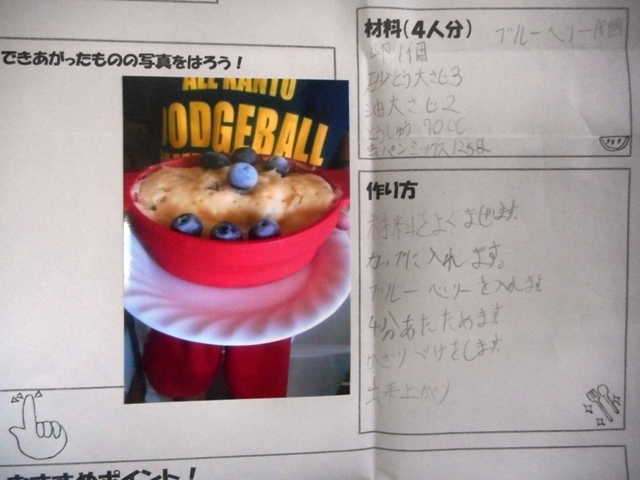 できあがったものの写真をはろう！
ALL KANTO
DODGEBALL
材料（4人分） ブルーベリー
卵1個
砂とう大さじ3
油大さじ2
とうにゅう 90cc
パンミックス
作り方
材料をよくまぜます
カップに入れます。
ブルーベリーを入れます
4分あたためます
かざりつけをします
出来上がり
おすすめポイント！